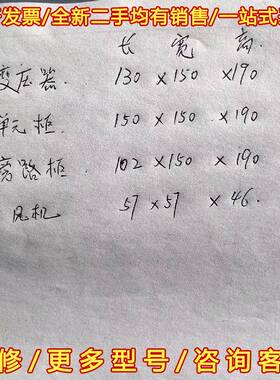 发票/全新二手均有销售/一站式
长 宽 高
变压器. 130 ×150 ×190
单元柜 150 ×150 ×190
旁路柜. 102 ×150 ×190
风机 57 ×57 ×46.
修/更多型号/咨询客